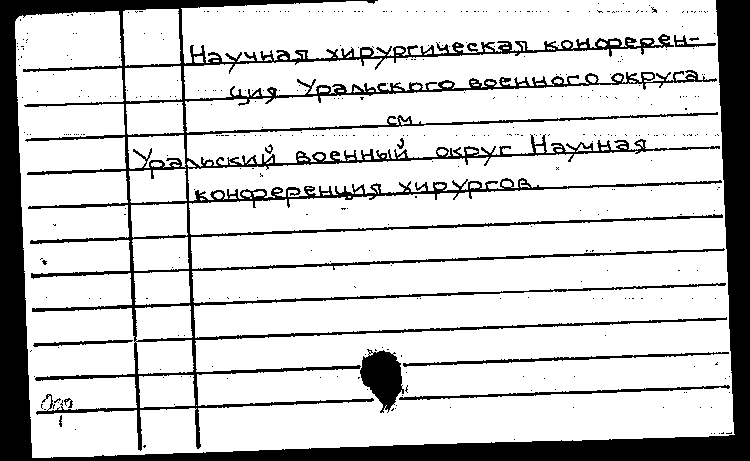 Научная хирургическая конферен-
ция Уральского военного округа.
см.
Уральский военный округ Научная
конференция хирургов.